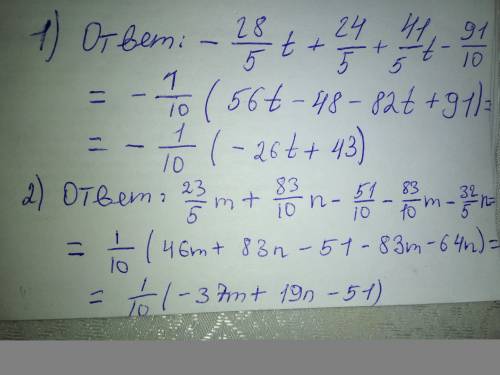 1) Ответ: - 28/5 t + 24/5 + 41/5 t - 91/10
= - 1/10 ( 56t - 48 - 82t + 91) =
= - 1/10 ( - 26t + 43)
2) Ответ: 23/5 m + 83/10 n - 51/10 - 83/10 m - 32/5 n =
= 1/10 ( 46m + 83n - 51 - 83m - 64n) =
= 1/10 ( - 37m + 19n - 51)